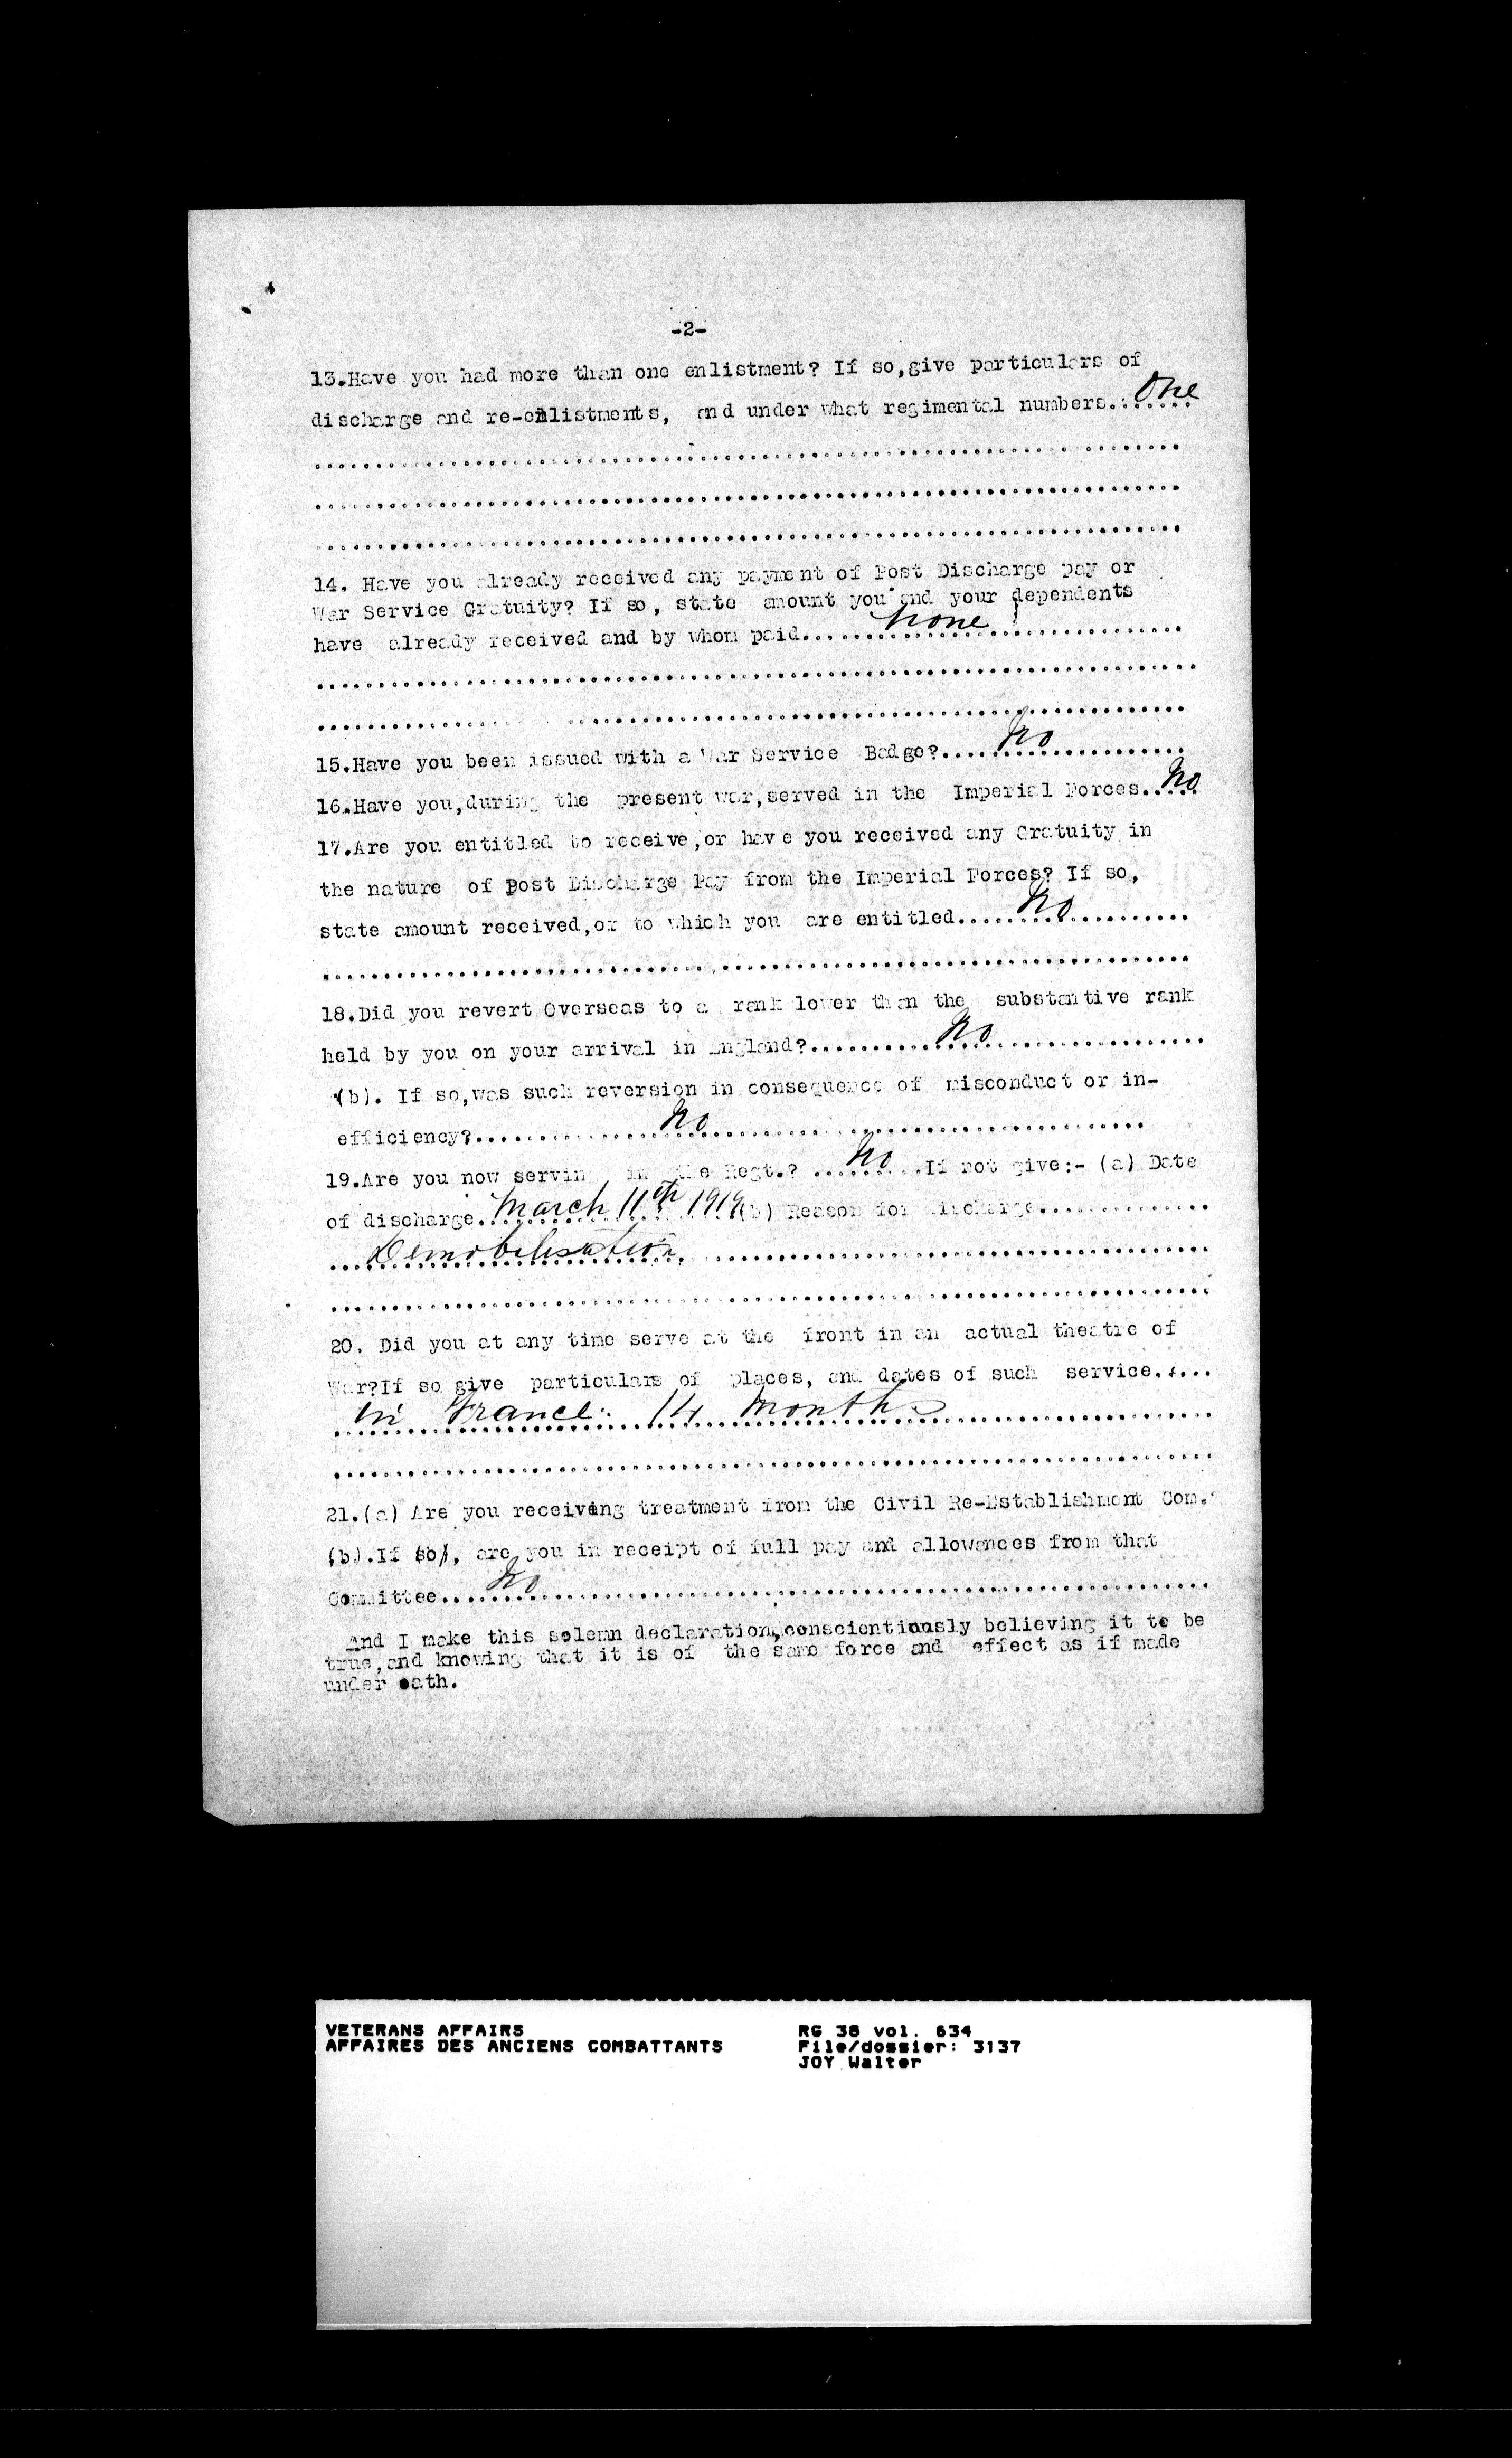 -2-
13.Have you had more than one enlistment? If so,give particulars of
discharge and re-enlistments, and under what regimental numbers........One
14. Have you already received any payment of Post Discharge pay or
War Service Gratuity? If so, state amount you and your dependents
have already received and by whom paid........none........
15.Have you been issued with a War Service Badge?.....No........
16.Have you,during the present war,served in the Imperial Forces.....No
17.Are you entitled to receive,or have you received any Gratuity in
the nature of Post Discharge Pay from the Imperial Forces? If so,
state amount received,or to which you are entitled......No........
18.Did you revert Overseas to a rank lower than the substantive rank
held by you on your arrival in England?........No........
(b). If so,was such reversion in consequence of misconduct or in-
efficiency?........No........
19.Are you now serving in the Regt.? ....No.....If not give:- (a) Date
of discharge.March 11th 1919(b) Reason for discharge........
Demobilisation
20. Did you at any time serve at the front in an actual theatre of
War?If so give particulars of places, and dates of such service.....
In France. 14 months
21.(a) Are you receiving treatment from the Civil Re-Establishment Com.
(b).If so, are you in receipt of full pay and allowances from that
Committee....No........
And I make this solemn declaration,conscientiously believing it to be
true,and knowing that it is of the same force and effect as if made
under oath.
VETERANS AFFAIRS RG 38 vol. 634
AFFAIRES DES ANCIENS COMBATTANTS File/dossier: 3137
JOY Walter